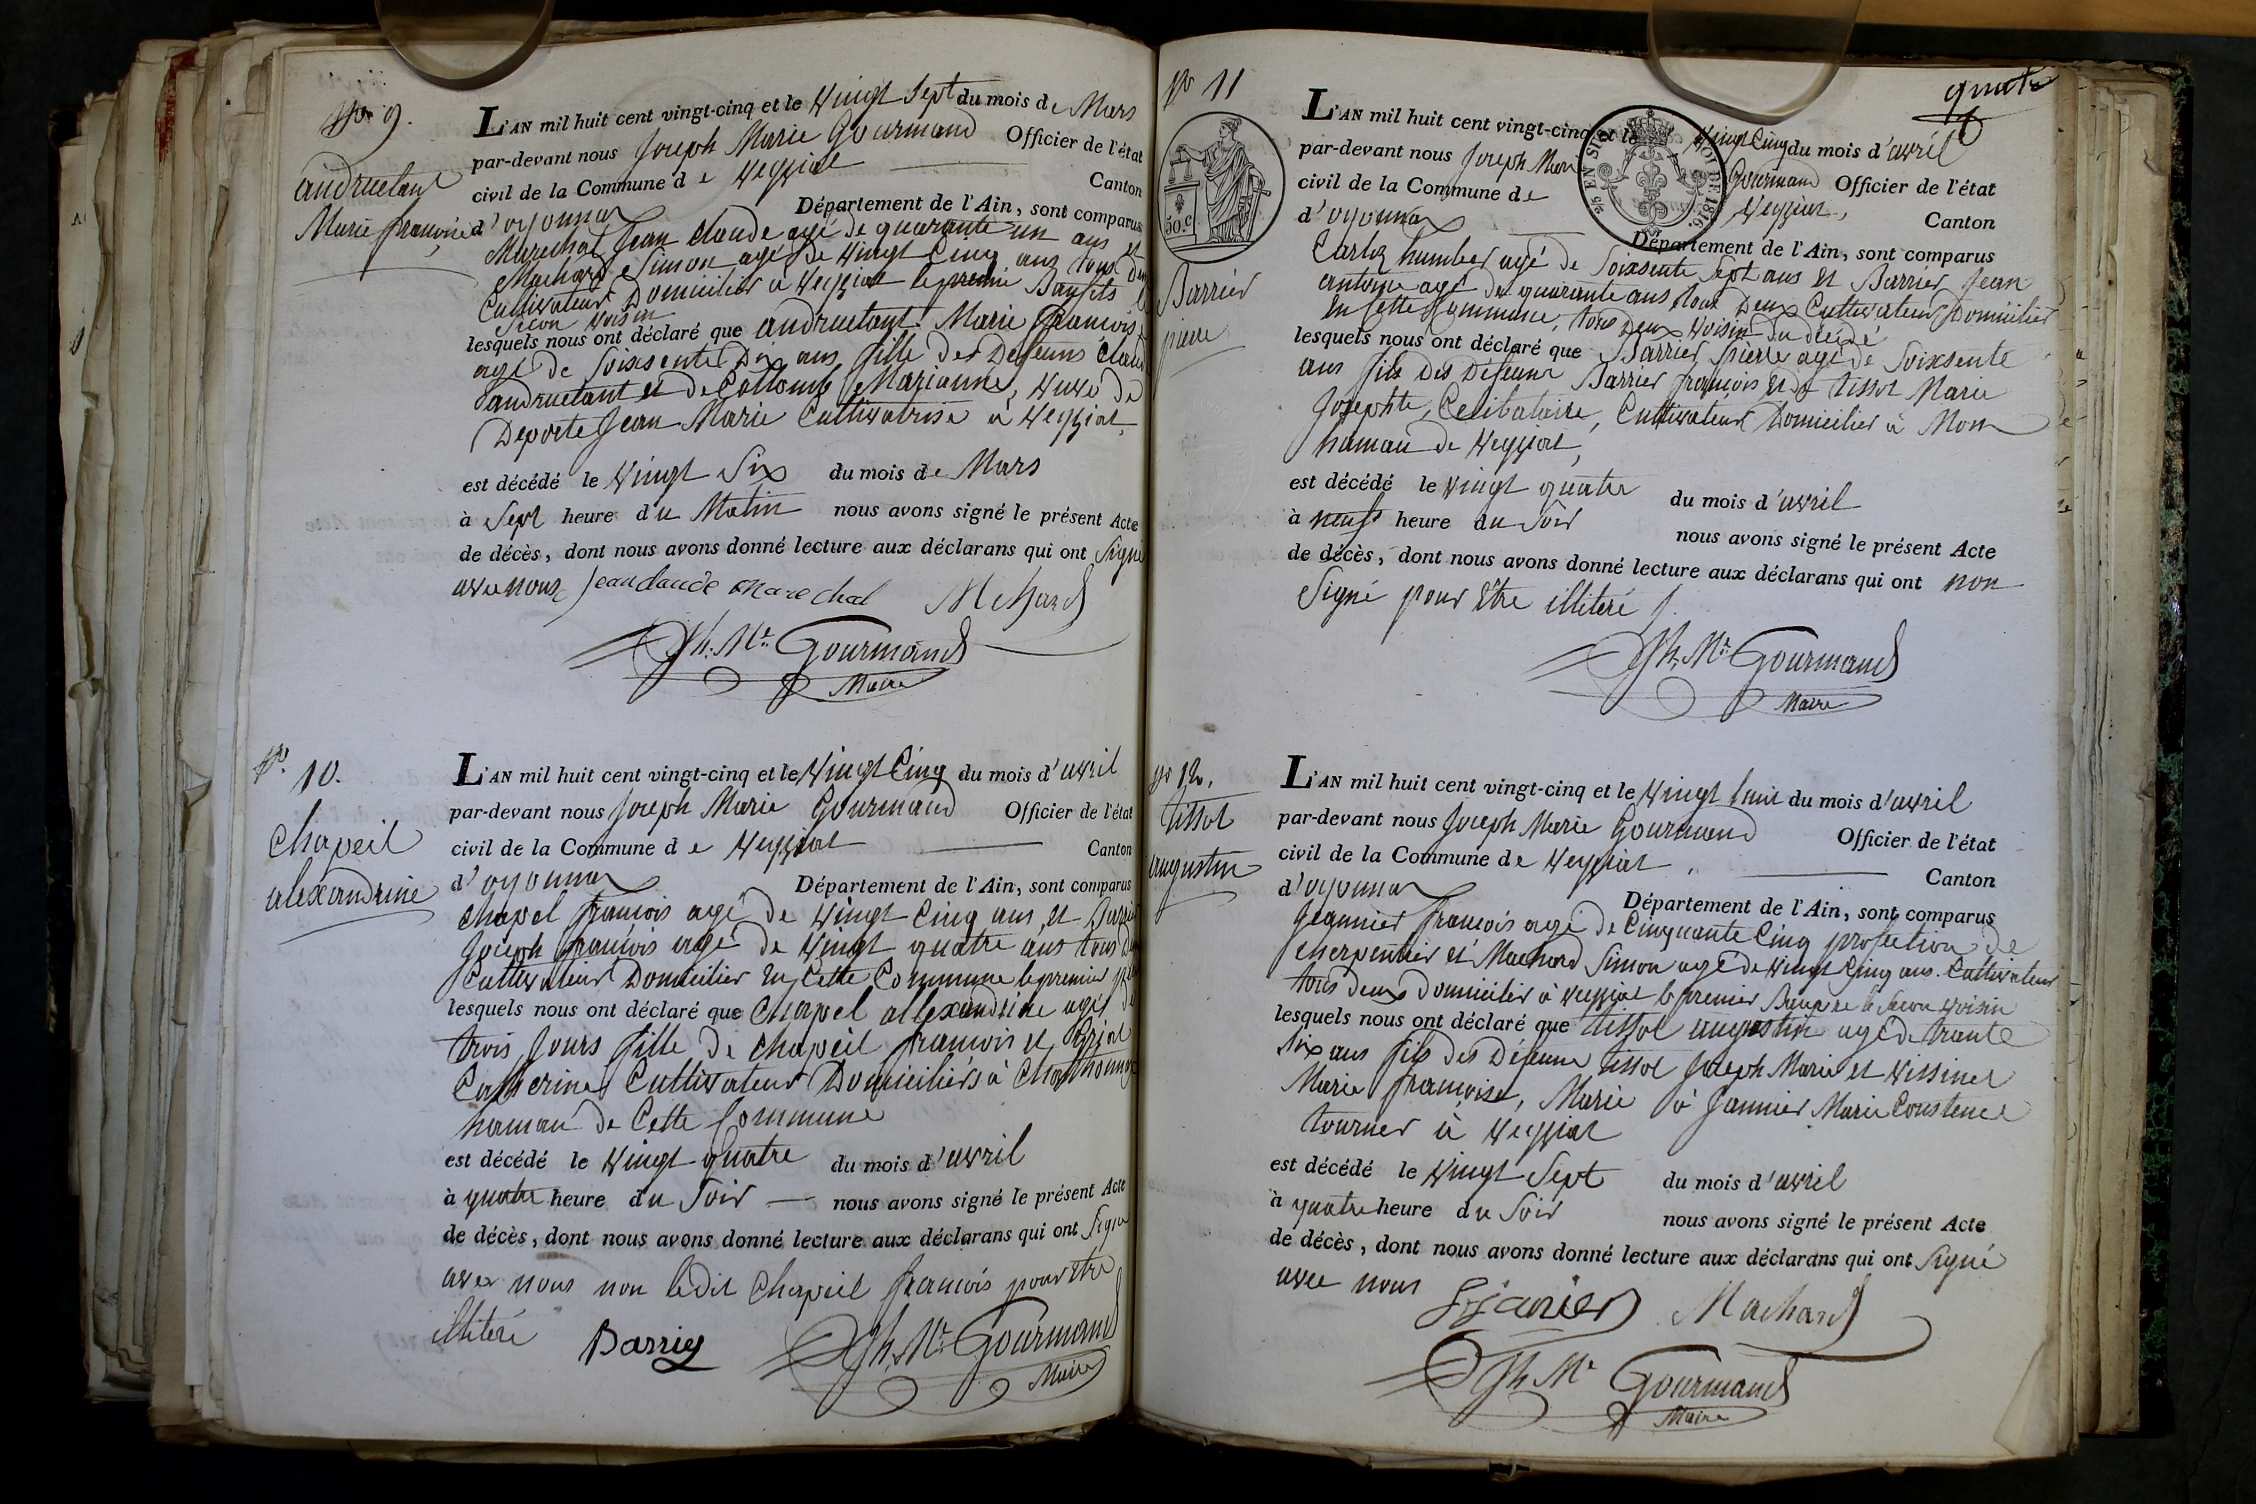 No 9.
andruetant
Marie françoise
L'AN mil huit cent vingt-cinq et le Vingt Sept du mois de Mars
par-devant nous Joseph Marie Gourmand Officier de l'état
civil de la Commune de Veyziat Canton
d'oyonnax Département de l'Ain, sont comparus
Marechal Jean Claude agé de quarante un ans et
Machard Simon agé de Vingt Cinq ans tous deux
Cultivateur Domicilier à Veyziat le premie Baufils le
Secon Voisin
lesquels nous ont déclaré que andruetant Marie françoise
agé de Soixsente Dix ans fille des Defeuns Claude
andruetant et de Collomb Marianne, Veuve de
Deporte Jean Marie Cultivatrise à Veyziat,
est décédé le Vingt Six du mois de Mars
à Sept heure du Matin nous avons signé le présent Acte
de décès, dont nous avons donné lecture aux déclarans qui ont Signé
avec nous Jean claude marechal Machard
Jh. Mie Gourmand
Maire
No 10.
Chapeil
alexandrine
L'AN mil huit cent vingt-cinq et le Vingt Cinq du mois d'avril
par-devant nous Joseph Marie Gourmand Officier de l'état
civil de la Commune de Veyziat Canton
d'oyonnax Département de l'Ain, sont comparus
Chapel françois agé de Vingt Cinq ans, et Barrier
Joseph françois agé de Vingt quatre ans tous deux
Cultivateur Domicilier en Cette Commune le premier
lesquels nous ont déclaré que Chapel allexandrine agé de
trois Jours fille de Chapeil françois et
Catherine Cultivateur Domiciliers à
hamau de Cette Commune
est décédé le Vingt quatre du mois d'avril
à quatre heure du Soir nous avons signé le présent Acte
de décès, dont nous avons donné lecture aux déclarans qui ont Signé
avex nous non ledit Chapeil françois pour être
illiteré Barrier Jh. Mie Gourmand
Maire
quatre
No 11
Barrier
pierre
50.c
25 EN SUS
LOI DE 1816.
L'AN mil huit cent vingt-cinq et le Vingt Cinq du mois d'avril
par-devant nous Joseph Marie Gourmand Officier de l'état
civil de la Commune de Veyziat, Canton
d'oyonnax Département de l'Ain, sont comparus
Carloz humber agé de Soixsente Sept ans et Barrier Jean
antoine agé de quarante ans tous Deux Cultivateur Domicilier
en Cette Commune, tous Deux Voisin du décédé
lesquels nous ont déclaré que Barrier pierre agé de Soixsente
ans fils Des Defeunt Barrier françois et de tissot Marie
Josephte, Celibataire, Cultivateur Domicilier à Mons
hamau de Veyziat,
est décédé le Vingt quatre du mois d'avril
à neuf heure du Soir nous avons signé le présent Acte
de décès, dont nous avons donné lecture aux déclarans qui ont non
Signé pour être illiteré
Jh. Mie Gourmand
Maire
No 12.
tissot
augustin
L'AN mil huit cent vingt-cinq et le Vingt huit du mois d'avril
par-devant nous Joseph Marie Gourmand Officier de l'état
civil de la Commune de Veyziat Canton
d'oyonnax Département de l'Ain, sont comparus
Jeannier françois agé de Cinquante Cinq profection de
cherpentier et Machard Simon agé de Vingt Cinq ans. Cultivateur
tous deux domicilier à Veyziat le premier Baupere le Secon Voisin
lesquels nous ont déclaré que tissot augustin agé de trante
Six ans fils des Defeunt tissot Joseph Marie et Vissinet
Marie françoise, Marié à Jannier Marie Constence
tourner à Veyziat
est décédé le Vingt Sept du mois d'avril
à quatre heure du Soir nous avons signé le présent Acte
de décès, dont nous avons donné lecture aux déclarans qui ont Signé
avec nous Machard
Jh Mie Gourmand
Maire